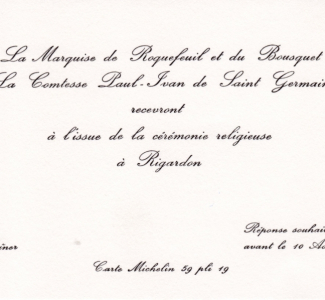 La Marquise de Roquefeuil et du Bousquet
La Comtesse Paul-Ivan de Saint Germain
recevront
à l'issue de la cérémonie religieuse
à Rigardon
Réponse souhait
îner
avant le 10 Ao
Carte Michelin 59 pli 19